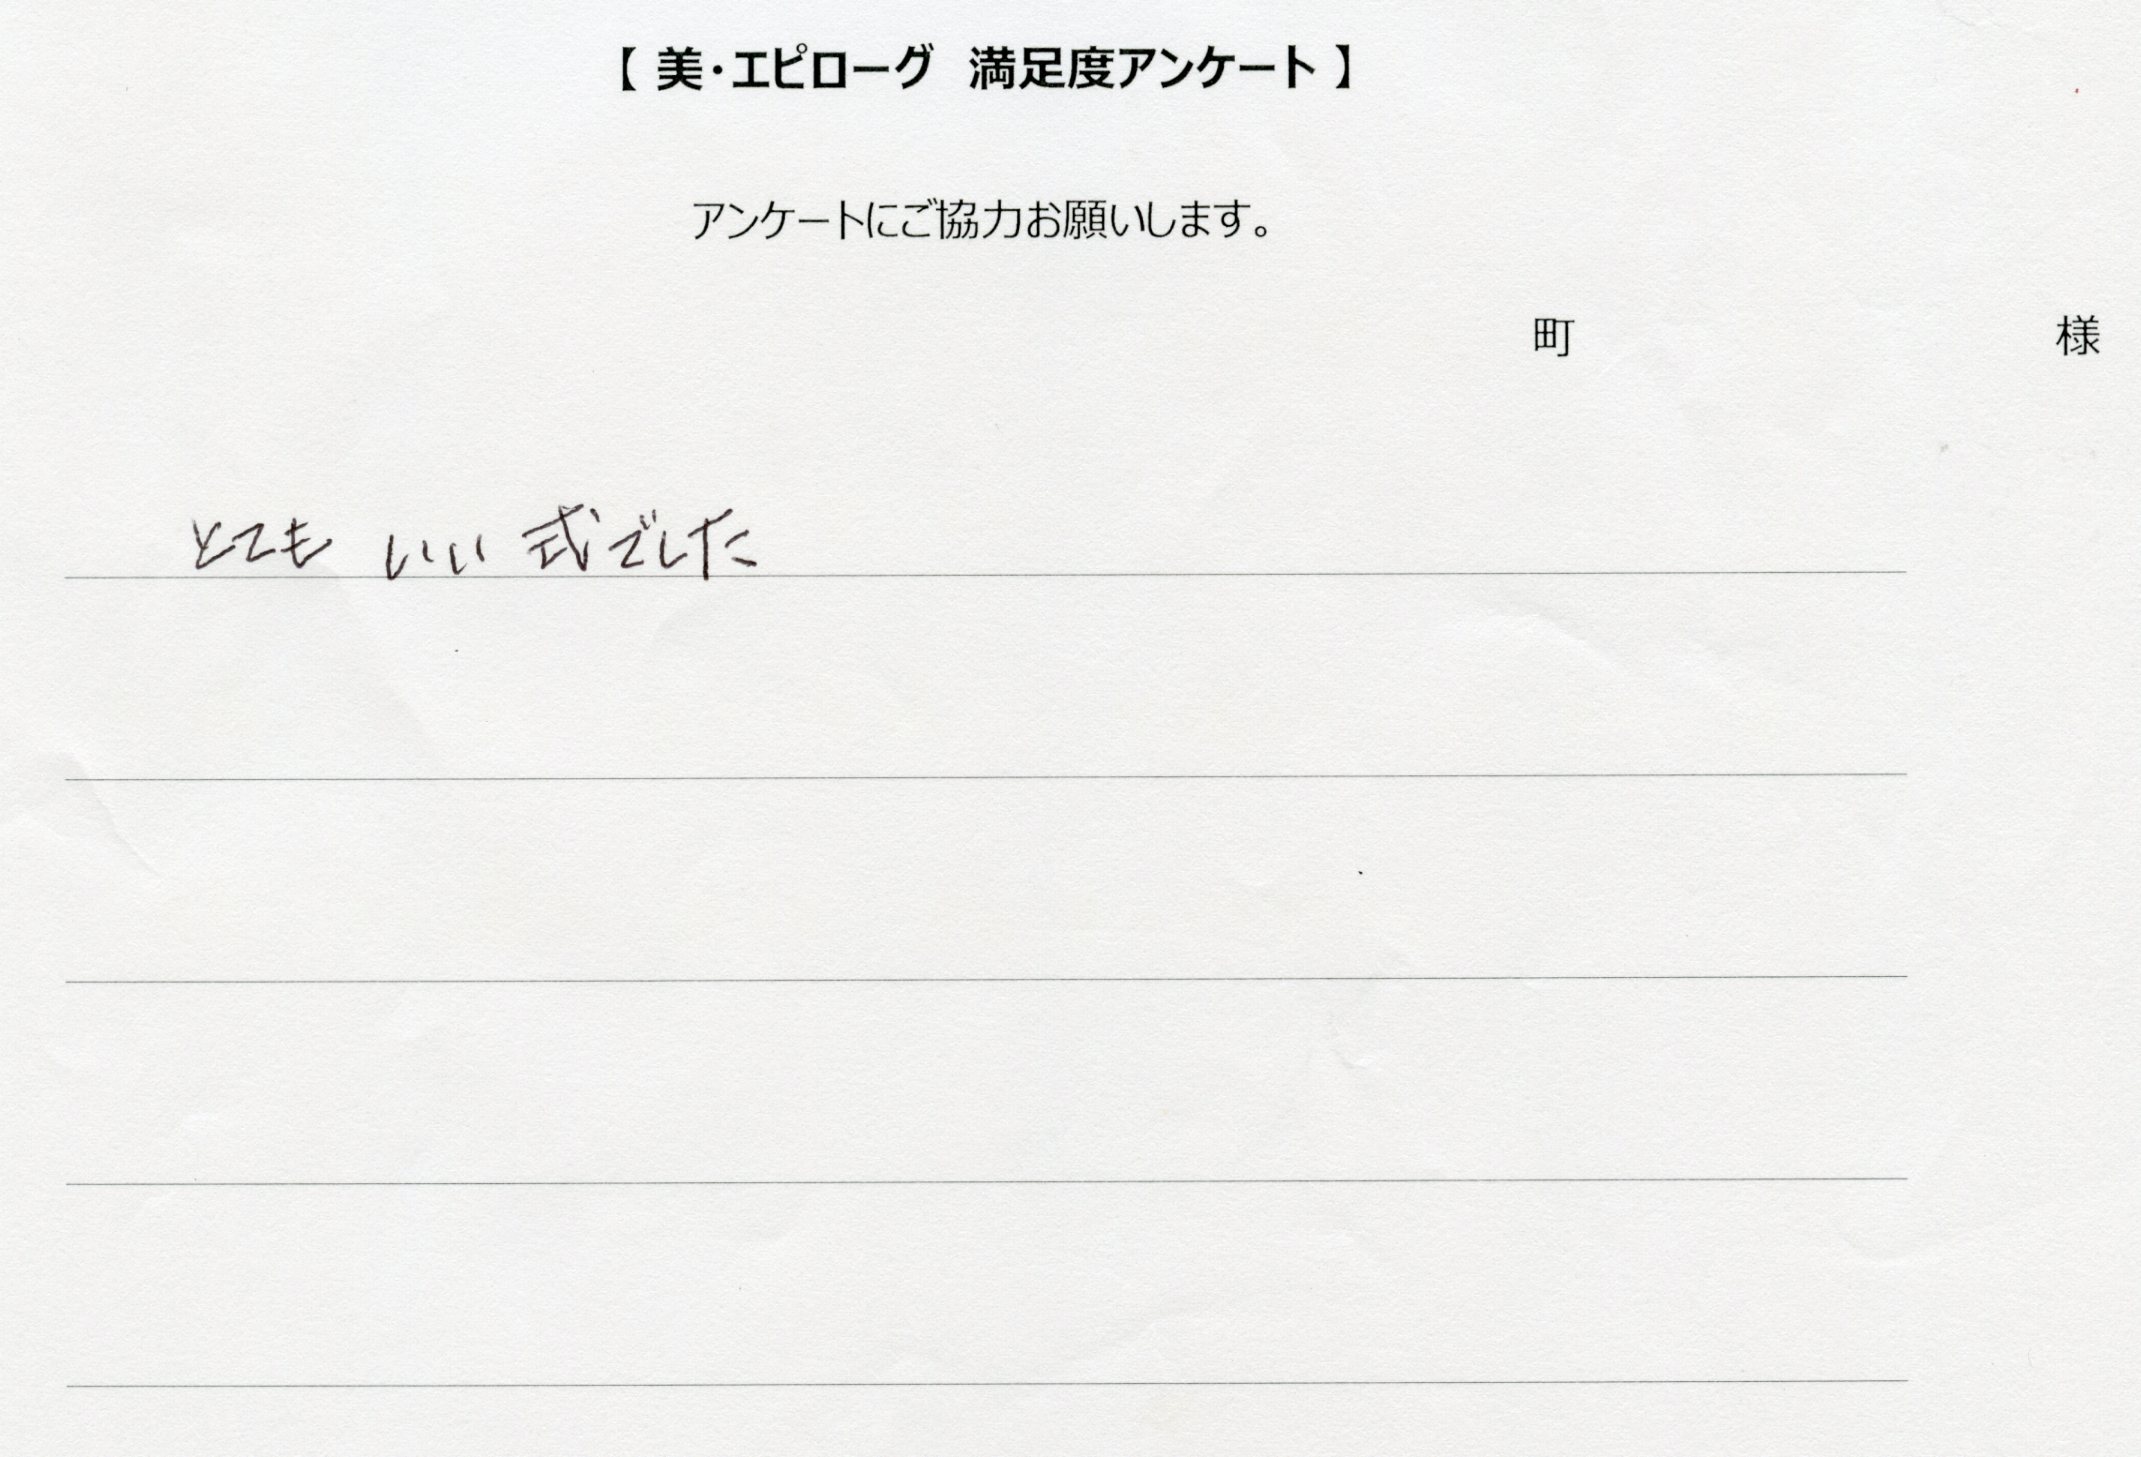 【 美・エピローグ 満足度アンケート 】
アンケートにご協力お願いします。
町 様
とても いい 式でした